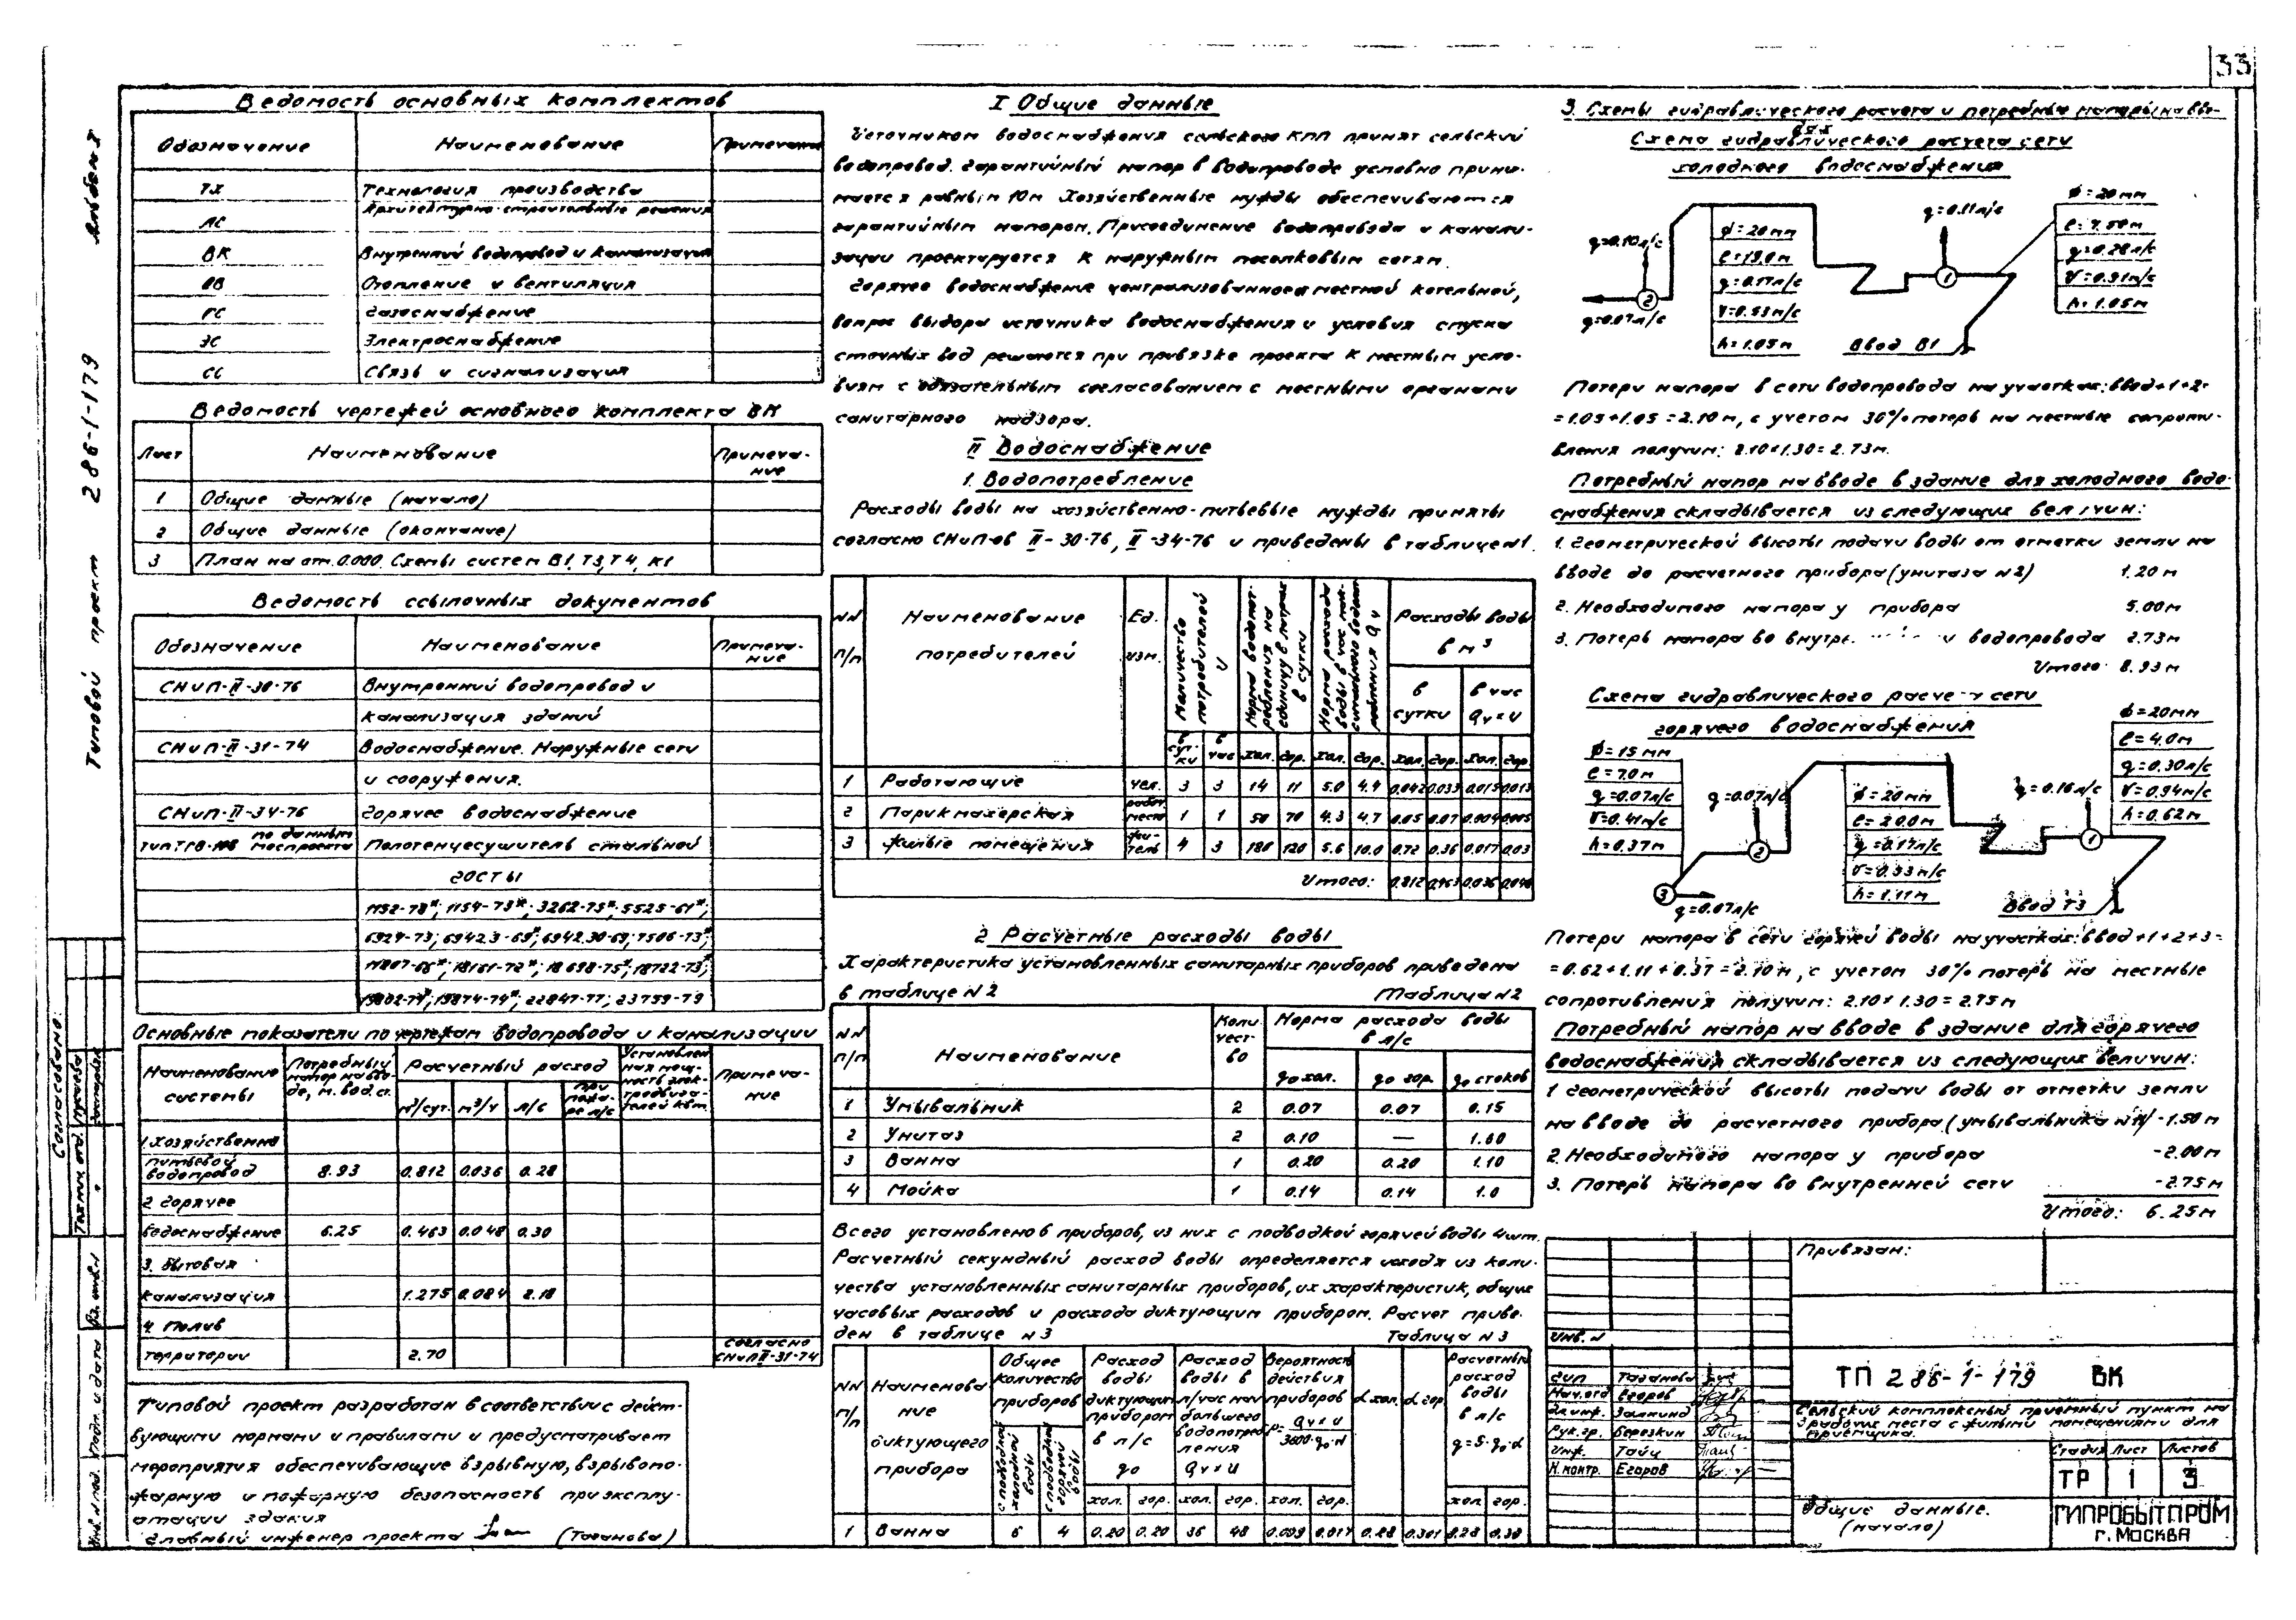 33
Альбом I
Типовой проект 286-1-179
Ведомость основных комплектов
Обозначение Наименование Примечание
ТХ Технология производства
АС Архитектурно-строительные решения
ВК Внутренний водопровод и канализация
ОВ Отопление и вентиляция
ГС Газоснабжение
ЭС Электроснабжение
СС Связь и сигнализация
Ведомость чертежей основного комплекта ВК
Лист Наименование Примеча-
ние
1 Общие данные (начало)
2 Общие данные (окончание)
3 План на от. 0.000. Схемы систем В1, Т3, Т4, К1
Ведомость ссылочных документов
Обозначение Наименование Примеча-
ние
СНиП-II-30-76 Внутренний водопровод и
канализация зданий
СНиП-II-31-74 Водоснабжение. Наружные сети
и сооружения.
СНиП-II-34-76 Горячее водоснабжение
по данным
Моспроекта Полотенцесушитель стальной
ГОСТЫ
1152-78*; 1154-73*; 3262-75*; 5525-61*;
6924-73; 6942.3-69*; 6942.30-69; 7506-73*;
18161-72*; 18698-75*; 18722-73*;
19874-74*; 22847-77; 23759-79
Основные показатели по чертежам водопровода и канализации
Наименование
системы
Потребный
напор на вво-
де, м. вод. ст.
Расчетный расход
м³/сут. м³/ч л/с
при
пожа-
ре л/с
Установлен
ная мощ-
ность элек-
тродвига-
телей квт
Примеча-
ние
1. Хозяйственно
питьевой
водопровод 8.93 0.812 0.036 0.28
2 Горячее
водоснабжение 6.25 0.463 0.048 0.30
3. Бытовая
канализация 1.275 0.084 2.18
4 Полив
территории 2.70 согласно
СНиП II-31-74
Типовой проект разработан в соответствии с дейст-
вующими нормами и правилами и предусматривает
мероприятия обеспечивающие взрывную, взрывопо-
жарную и пожарную безопасность при эксплу-
атации здания
Главный инженер проекта (Таганова)
I Общие данные
Источником водоснабжения сельского КПП принят сельский
водопровод. Гарантийный напор в водопроводе условно прини-
мается равным 10м Хозяйственные нужды обеспечиваются
гарантийным напором. Присоединение водопровода и канали-
зации проектируется к наружным поселковым сетям.
Горячее водоснабжение централизованное от местной котельной,
вопрос выбора источника водоснабжения и условия спуска
сточных вод решаются при привязке проекта к местным усло-
виям с обязательным согласованием с местными органами
санитарного надзора.
II Водоснабжение
1. Водопотребление
Расходы воды на хозяйственно-питьевые нужды приняты
согласно СНиП-ов II-30-76, II-34-76 и приведены в таблице №1.
NN
п/п
Наименование
потребителей
Ед.
изм.
Количество
потребителей
U
Норма водопот-
ребления на
единицу в литрах
в сутки
Норма расхода
воды в час мак-
симального водопот-
ребления Qч
Расходы воды
в м³
в
сутки
в час
Qч×U
в
сут-
ки
в
час хол. гор. хол. гор. хол. гор. хол. гор.
1 Работающие чел. 3 3 14 11 5.0 4.4 0.042 0.033 0.015 0.013
2 Парикмахерская рабоч.
место 1 1 50 70 4.3 4.7 0.05 0.07 0.004 0.005
3 Жилые помещения жи-
тель 4 3 180 120 5.6 10.0 0.72 0.36 0.017 0.03
Итого: 0.812 0.463 0.036 0.048
2 Расчетные расходы воды
Характеристика установленных санитарных приборов приведена
в таблице N 2 Таблица N 2
NN
п/п
Наименование
Коли
чест-
во
Норма расхода воды
в л/с
qо хол. qо гор. qо стоков
1 Умывальник 2 0.07 0.07 0.15
2 Унитаз 2 0.10 — 1.60
3 Ванна 1 0.20 0.20 1.10
4 Мойка 1 0.14 0.14 1.0
Всего установлено 6 приборов, из них с подводкой горячей воды 4 шт.
Расчетный секундный расход воды определяется исходя из коли-
чества установленных санитарных приборов, их характеристик, общих
часовых расходов и расхода диктующим прибором. Расчет приве-
ден в таблице N 3 Таблица N 3
NN
п/п
Наименова
ние
диктующего
прибора
Общее
количество
приборов
с подводкой
холодной
воды
с подводкой
горячей
воды
Расход
воды
диктующим
прибором
в л/с
qо
Расход
воды в
л/час наи
большего
водопотреб
ления
Qч×U
Вероятность
действия
приборов
P= Qч×U
3600·qо·N
α хол. α гор.
Расчетный
расход
воды
в л/с
q=5·qо·α
хол. гор. хол. гор. хол. гор. хол. гор.
1 Ванна 6 4 0.20 0.20 36 48 0.009 0.017 0.28 0.301 0.28 0.30
3. Схемы гидравлического расчета и потребные напоры на вво-
дах
Схема гидравлического расчета сети
холодного водоснабжения
q=0.10л/с
2
q=0.07л/с
ϕ=20мм
ℓ=19.0м
q=0.17л/с
V=0.53м/с
h=1.05м
Ввод В1
q=0.11л/с
1
ϕ=20мм
ℓ=7.50м
q=0.28л/с
V=0.91м/с
h=1.05м
Потери напора в сети водопровода на участках: ввод+1+2=
=1.05+1.05=2.10м, с учетом 30% потерь на местные сопроти-
вления получим: 2.10×1.30=2.73м.
Потребный напор на вводе в здание для холодного водо-
снабжения складывается из следующих величин:
1. Геометрической высоты подачи воды от отметки земли на
вводе до расчетного прибора (унитаза N2) 1.20м
2. Необходимого напора у прибора 5.00м
3. Потерь напора во внутре. водопровода 2.73м
Итого: 8.93м
Схема гидравлического расчета сети
горячего водоснабжения
ϕ=15мм
ℓ=7.0м
q=0.07л/с
V=0.41м/с
h=0.37м
q=0.07л/с
2
3
q=0.07л/с
ϕ=20мм
ℓ=20.0м
q=0.14л/с
V=0.53м/с
h=1.11м
q=0.16л/с
1
Ввод Т3
ϕ=20мм
ℓ=4.0м
q=0.30л/с
V=0.94м/с
h=0.62м
Потери напора в сети горячей воды на участках: ввод+1+2+3=
=0.62+1.11+0.37=2.10м, с учетом 30% потерь на местные
сопротивления получим: 2.10×1.30=2.75м
Потребный напор на вводе в здание для горячего
водоснабжения складывается из следующих величин:
1 Геометрической высоты подачи воды от отметки земли
на вводе до расчетного прибора (умывальника N1) -1.50м
2. Необходимого напора у прибора -2.00м
3. Потерь напора во внутренней сети -2.75м
Итого: 6.25м
Привязан:
Инв. N
ГИП Таганова
Нач.отд Егоров
Гл.инж. Залкинд
Рук.гр. Березкин
Инж. Тайц
Н.контр. Егоров
ТП 286-1-179 ВК
Сельский комплексный приемный пункт на
3 рабочих места с жилыми помещениями для
приемщика.
Стадия Лист Листов
ТР 1 3
Общие данные.
(начало)
ГИПРОБЫТПРОМ
г. МОСКВА
Согласовано:
Взам. инв. N
Подп. и дата
Инв. N под.